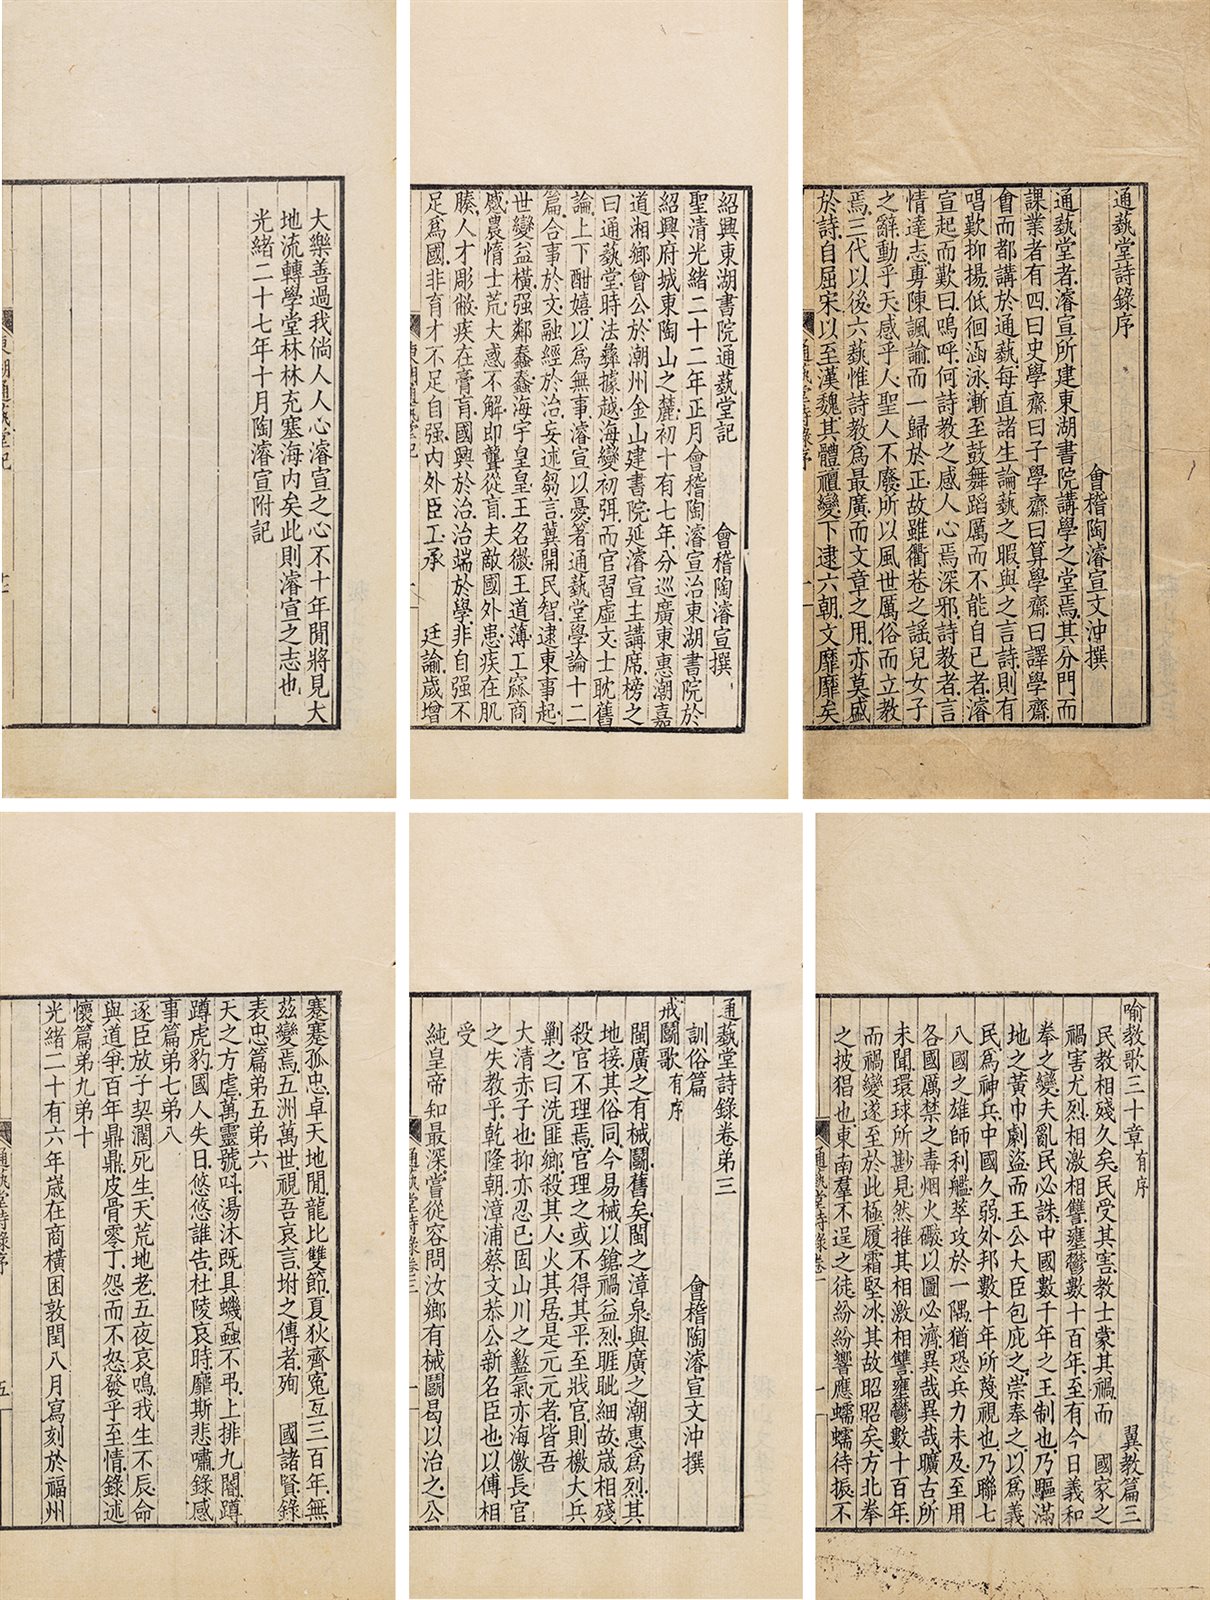 通蓺堂詩錄序
會稽陶濬宣文沖撰
通蓺堂者濬宣所建東湖書院講學之堂焉其分門而
課業者有四曰史學齋曰子學齋曰算學齋曰譯學齋
會而都講於通蓺每直諸生論蓺之暇與之言詩則有
唱歎抑揚低徊涵泳漸至鼓舞蹈厲而不能自已者濬
宣起而歎曰嗚呼何詩教之感人心焉深邪詩教者言
情達志專陳諷諭而一歸於正故雖衢巷之謠兒女子
之辭動乎天感乎人聖人不廢所以風世厲俗而立教
焉三代以後六蓺惟詩教爲最廣而文章之用亦莫盛
於詩自屈宋以至漢魏其體禪變下逮六朝文靡靡矣
通蓺堂詩錄序
一
紹興東湖書院通蓺堂記
會稽陶濬宣撰
聖清光緒二十二年正月會稽陶濬宣治東湖書院於
紹興府城東陶山之麓初十有七年分巡廣東惠潮嘉
道湘鄉曾公於潮州金山建書院延濬宣主講席榜之
曰通蓺堂時法彝據越海變初弭而官習虛文士耽舊
論上下酣嬉以爲無事濬宣以憂著通蓺堂學論十二
篇合事於文融經於治妄述芻言冀開民智逮東事起
世變益橫强鄰蠢蠢海宇皇皇王名微王道薄工窳商
慼農惰士荒大惑不解即聾從盲夫敵國外患疾在肌
腠人才彫敝疾在膏肓國興於治治端於學非自强不
足爲國非育才不足自强内外臣工承 廷諭歲增
東湖通蓺堂記
一
大樂善過我倘人人心濬宣之心不十年閒將見大
地流轉學堂林林充塞海内矣此則濬宣之志也
光緒二十七年十月陶濬宣附記
東湖通蓺堂記
喻教歌三十章有序
翼教篇三
民教相殘久矣民受其害教士蒙其禍而 國家之
禍害尤烈相激相讐壅鬱數十百年至有今日義和
拳之變夫亂民必誅中國數千年之王制也乃驅滿
地之黃巾劇盜而王公大臣包庇之崇奉之以爲義
民爲神兵中國久弱外邦數十年所蔑視也乃聯七
八國之雄師利艦萃攻於一隅猶恐兵力未及至用
各國厲禁之毒烟火礮以圖必濟異哉異哉曠古所
未聞環球所尠見然推其相激相讐壅鬱數十百年
而禍變遂至於此極履霜堅冰其故昭昭矣方北拳
之披猖也東南羣不逞之徒紛紛響應蠕蠕待振不
通蓺堂詩錄卷一
一
通蓺堂詩錄卷弟三
會稽陶濬宣文沖撰
訓俗篇
戒鬬歌有序
閩廣之有械鬬舊矣閩之漳泉與廣之潮惠爲烈其
地接其俗同今易械以鎗禍益烈睚眦細故歲相殘
殺官不理焉官理之或不得其平至戕官則檄大兵
剿之曰洗匪鄉殺其人火其居是元元者皆吾
大清赤子也抑亦忍已固山川之盭氣亦海儌長官
之失教乎乾隆朝漳浦蔡文恭公新名臣也以傅相
受
純皇帝知最深嘗從容問汝鄉有械鬬曷以治之公
通蓺堂詩錄卷三
一
蹇蹇孤忠卓天地閒龍比雙節夏狄齊冤亙三百年無
茲變焉五洲萬世視吾哀言坿之傳者殉 國諸賢錄
表忠篇弟五弟六
天之方虐萬靈號呌湯沐既具蟣蝨不弔上排九閽蹲
蹲虎豹國人失日悠悠誰告杜陵哀時靡斯悲嘯錄感
事篇弟七弟八
逐臣放子契濶死生天荒地老五夜哀鳴我生不辰命
與道爭百年鼎鼎皮骨零丁怨而不怒發乎至情錄述
懷篇弟九弟十
光緒二十有六年歲在商橫困敦閏八月寫刻於福州
通蓺堂詩錄序
五